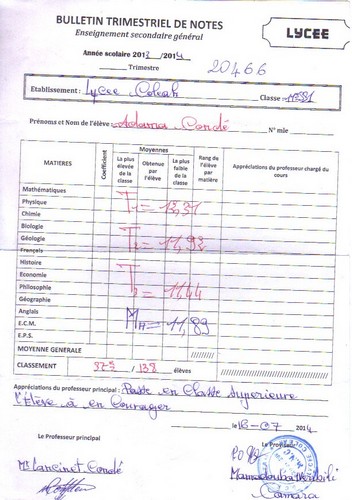 BULLETIN TRIMESTRIEL DE NOTES
Enseignement secondaire général
LYCEE
Année scolaire 2013 /2014
Trimestre
20466
Etablissement : Lycee Coleah Classe :
Prénoms et Nom de l'élève : Adama Condé N° mle
MATIERES Coefficient Moyennes Rang de l'élève par matière Appréciations du professeur chargé du cours
La plus élevée de la classe Obtenue par l'élève La plus faible de la classe
Mathématiques
Physique
Chimie
T1 = 12,31
Biologie
Géologie
T2 = 11,92
Français
Histoire
Economie
Philosophie
T3 = 11,44
Géographie
Anglais
MA = 11,89
E.C.M.
E.P.S.
MOYENNE GENERALE
CLASSEMENT / 138 élèves
Appréciations du professeur principal : Passe en Classe Superieure
L'Elève à en Courager
Le 16-07 2014
Le Professeur principal
Mr Lancinet Condé
Mamadouba
Camara